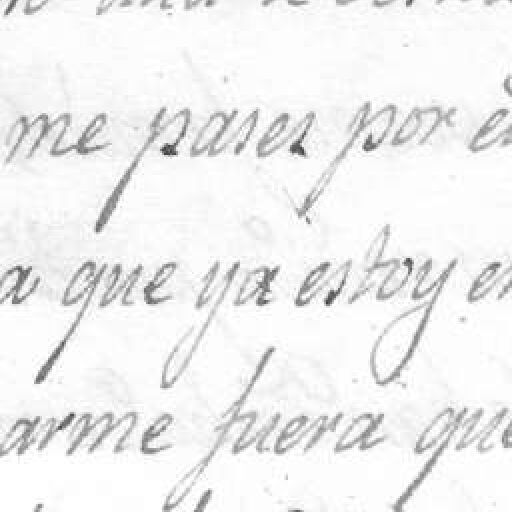 me pases por
a que ya estoy en
arme fuera que